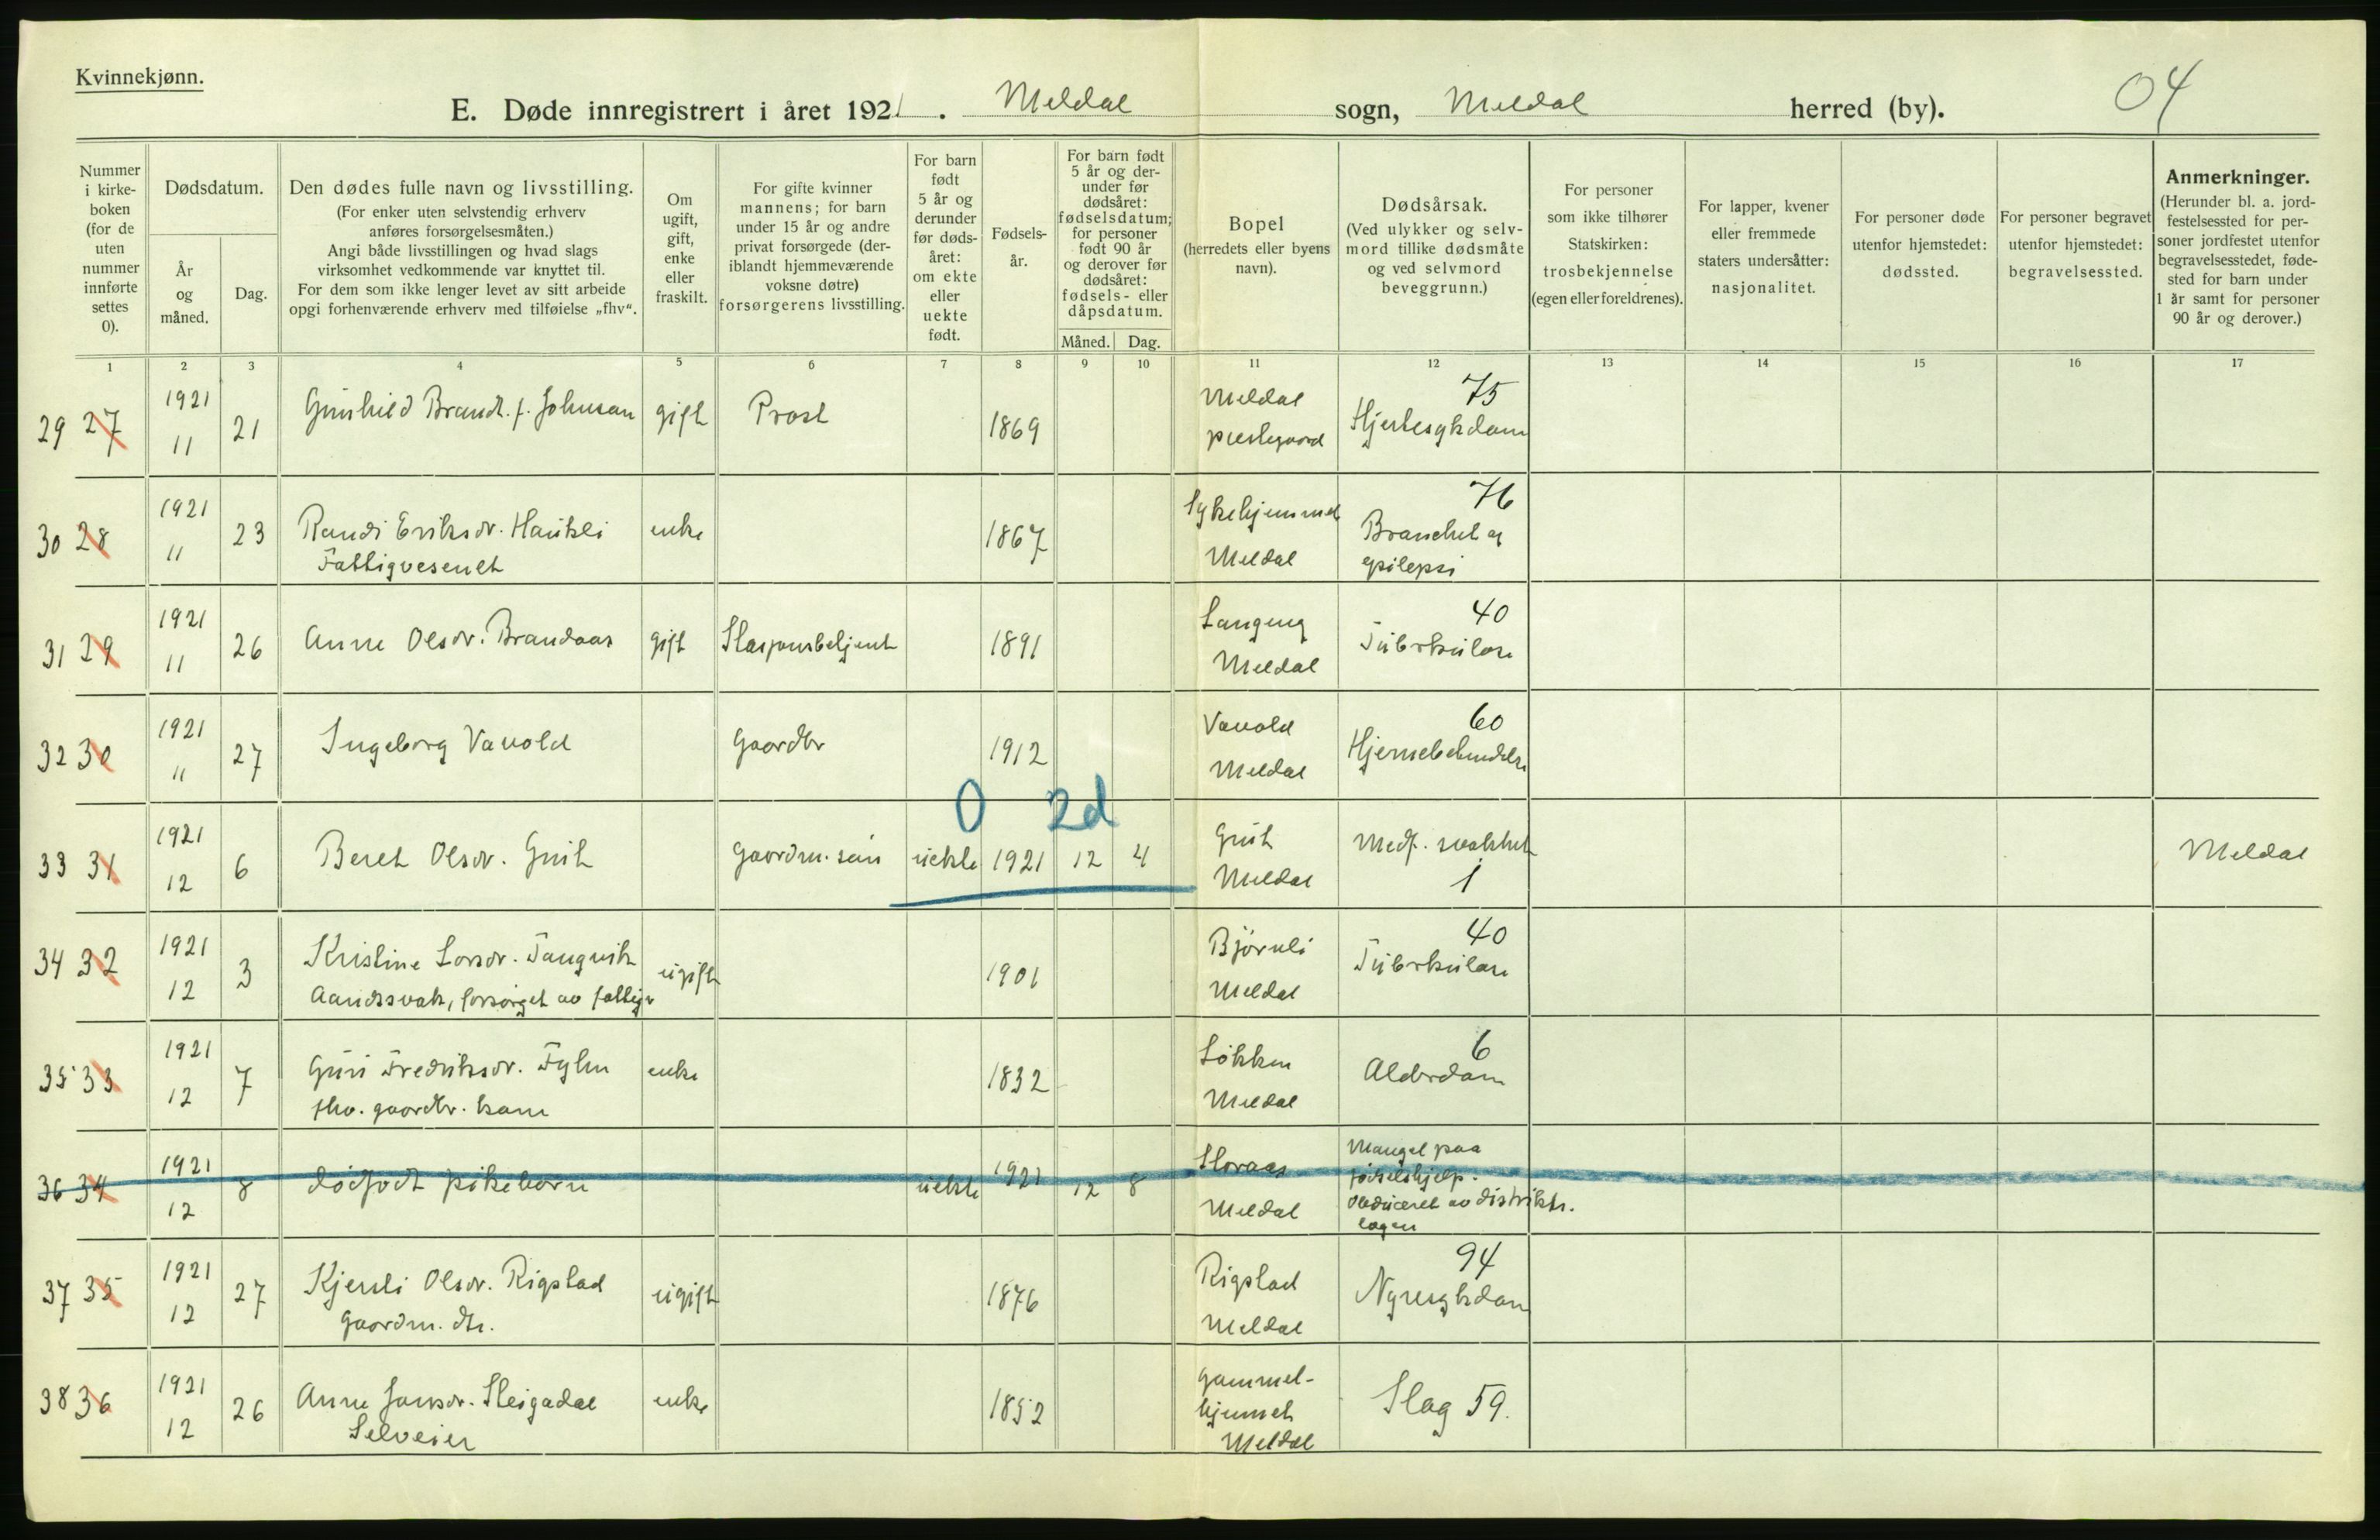 Kvinnekjønn.
E. Døde innregistrert i året 1921. Meldal sogn, Meldal herred (by).
04
Nummer i kirkeboken (for de uten nummer innførte settes 0).
Dødsdatum.
År og måned.
Dag.
Den dødes fulle navn og livsstilling.
(For enker uten selvstendig erhverv anføres forsørgelsesmåten.)
Angi både livsstillingen og hvad slags virksomhet vedkommende var knyttet til.
For dem som ikke lenger levet av sitt arbeide opgi forhenværende erhverv med tilføielse „fhv“.
Om ugift, gift, enke eller fraskilt.
For gifte kvinner mannens; for barn under 15 år og andre privat forsørgede (deriblandt hjemmeværende voksne døtre) forsørgerens livsstilling.
For barn født 5 år og derunder før dødsåret: om ekte eller uekte født.
Fødselsår.
For barn født 5 år og derunder før dødsåret: fødselsdatum; for personer født 90 år og derover før dødsåret: fødsels- eller dåpsdatum.
Måned.
Dag.
Bopel
(herredets eller byens navn).
Dødsårsak.
(Ved ulykker og selvmord tillike dødsmåte og ved selvmord beveggrunn.)
For personer som ikke tilhører Statskirken: trosbekjennelse (egen eller foreldrenes).
For lapper, kvener eller fremmede staters undersåtter: nasjonalitet.
For personer døde utenfor hjemstedet: dødssted.
For personer begravet utenfor hjemstedet: begravelsessted.
Anmerkninger.
(Herunder bl. a. jordfestelsessted for personer jordfestet utenfor begravelsesstedet, fødested for barn under 1 år samt for personer 90 år og derover.)
1 2 3 4 5 6 7 8 9 10 11 12 13 14 15 16 17
29 27 1921 11 21 Gunhild Brandt f. Johnsen gift Prost 1869 Meldal prestegaard Hjertesykdom 75
30 28 1921 11 23 Randi Eriksdr. Haukli Fattigvesenet enke 1867 Sykehjemmet Meldal epilepsi 76
31 29 1921 11 26 Anne Olsdr. Brandaas gift Stasjonsbetjent 1891 Langeng Meldal Tuberkulose 40
32 30 1921 11 27 Ingeborg Vavold Gaardbr 1912 Vavold Meldal Hjernebetendelse 60
0 2d
33 31 1921 12 6 Beret Olsdr. Grut Gaardm. søn uekte 1921 12 4 Grut Meldal Medf. svakhet 1 Meldal
34 32 1921 12 3 Kristine Larsdr. Tangvik Aandssvak, forsørget av fattigv ugift 1901 Bjørnli Meldal Tuberkulose 40
35 33 1921 12 7 Guri Fredriksdr. Fylin fhv. gaardbr. kone enke 1832 Løkken Meldal Alderdom 6
36 34 1921 12 8 dødfødt pikebarn uekte 1921 12 8 Storaas Meldal Mangel paa fødselshjelp. Obduceret av distriktslægen
37 35 1921 12 27 Kjersti Olsdr. Rigstad Gaardm. dtr. ugift 1876 Rigstad Meldal Nyresykdom 94
38 36 1921 12 26 Anne Jonsdr. Steigedal Selveier enke 1852 Gammelhjemmet Meldal Slag 59.